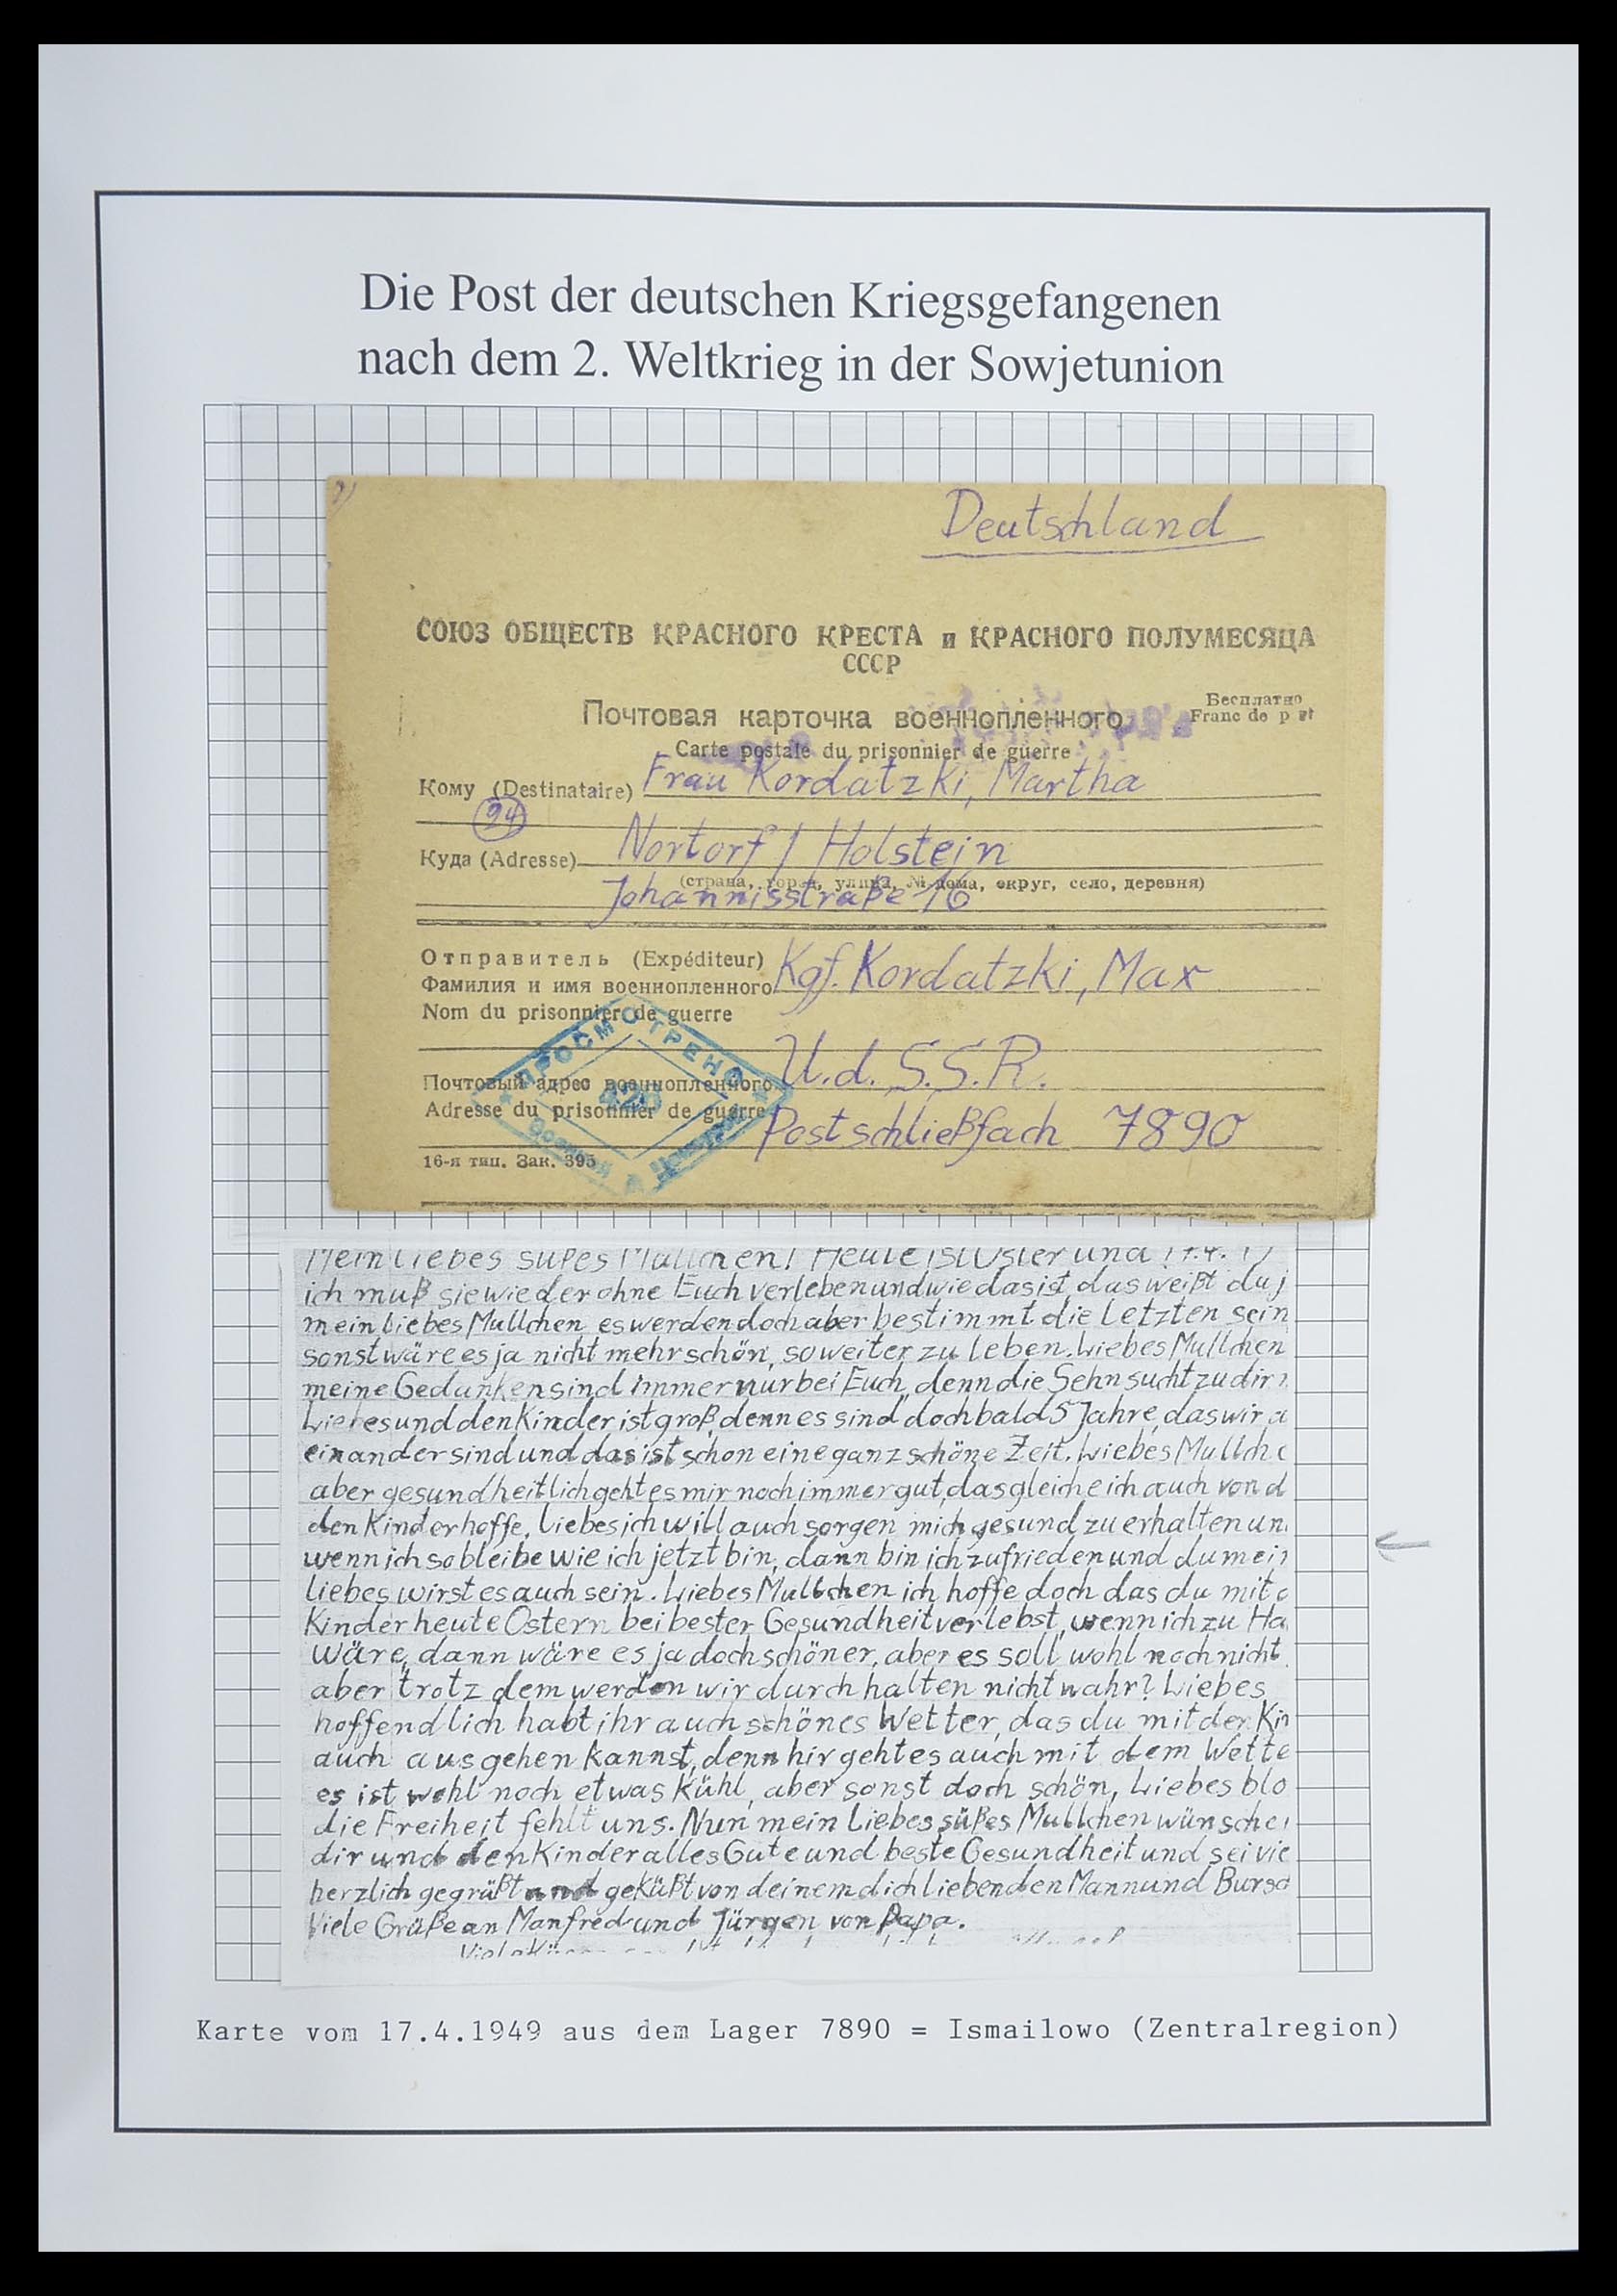 Die Post der deutschen Kriegsgefangenen
nach dem 2. Weltkrieg in der Sowjetunion
Deutschland
СОЮЗ ОБЩЕСТВ КРАСНОГО КРЕСТА и КРАСНОГО ПОЛУМЕСЯЦА
СССР
Почтовая карточка военнопленного
Бесплатно
Franc de port
Carte postale du prisonnier de guerre
Кому (Destinataire) Frau Kordatzki, Martha
24
Куда (Adresse) Nortorf / Holstein
(страна, город, улица, № дома, округ, село, деревня)
Johannisstraße 16
Отправитель (Expéditeur)
Фамилия и имя военнопленного Kgf. Kordatzki, Max
Nom du prisonnier de guerre
ПРОСМОТРЕНО
U.d.S.S.R.
Почтовый адрес военнопленного
Adresse du prisonnier de guerre
Postschließfach 7890
16-я тип. Зак. 395
Mein liebes süßes Mullchen! Heute ist Oster und 17.4.
ich muß sie wieder ohne Euch verleben und wie das ist, das weißt du j
mein liebes Mullchen es werden doch aber bestimmt die Letzten sein
sonst wäre es ja nicht mehr schön, so weiter zu leben. Liebes Mullchen
meine Gedanken sind immer nur bei Euch, denn die Sehnsucht zu dir
Liebes und den Kinder ist groß, denn es sind doch bald 5 Jahre, das wir a
einander sind und das ist schon eine ganz schöne Zeit. Liebes Mullche
aber gesundheitlich geht es mir noch immer gut, das gleiche ich auch von d
den Kinder hoffe. Liebes ich will auch sorgen mich gesund zu erhalten un
wenn ich so bleibe wie ich jetzt bin, dann bin ich zufrieden und du mein
liebes wirst es auch sein. Liebes Mullchen ich hoffe doch das du mit d
Kinder heute Ostern bei bester Gesundheit verlebst, wenn ich zu Ha
wäre, dann wäre es ja doch schöner, aber es soll wohl noch nicht
aber trotz dem werden wir durch halten nicht wahr? Liebes
hoffendlich habt ihr auch schönes Wetter, das du mit der Kin
auch ausgehen kannst, denn hir geht es auch mit dem Wette
es ist wohl noch etwas kühl, aber sonst doch schön, Liebes blo
die Freiheit fehlt uns. Nun mein Liebes süßes Mullchen wünsche
dir und den Kinder alles Gute und beste Gesundheit und sei vie
herzlich gegrüßt und geküßt von deinem dich liebenden Mann und Bursch
Viele Grüße an Manfred und Jürgen von Papa.
Karte vom 17.4.1949 aus dem Lager 7890 = Ismailowo (Zentralregion)